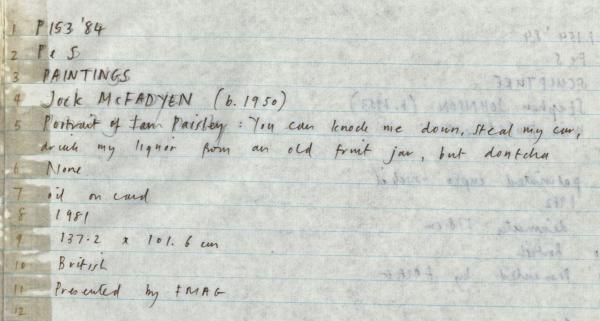 1 P153 '84
2 P e S
3 PAINTINGS
4 Jock McFADYEN (b. 1950)
5 Portrait of Ian Paisley: You can knock me down, steal my car,
drink my liquor from an old fruit jar, but dontcha
6 None
7 oil on card
8 1981
9 137.2 x 101.6 cm
10 British
11 Presented by FMAG
12